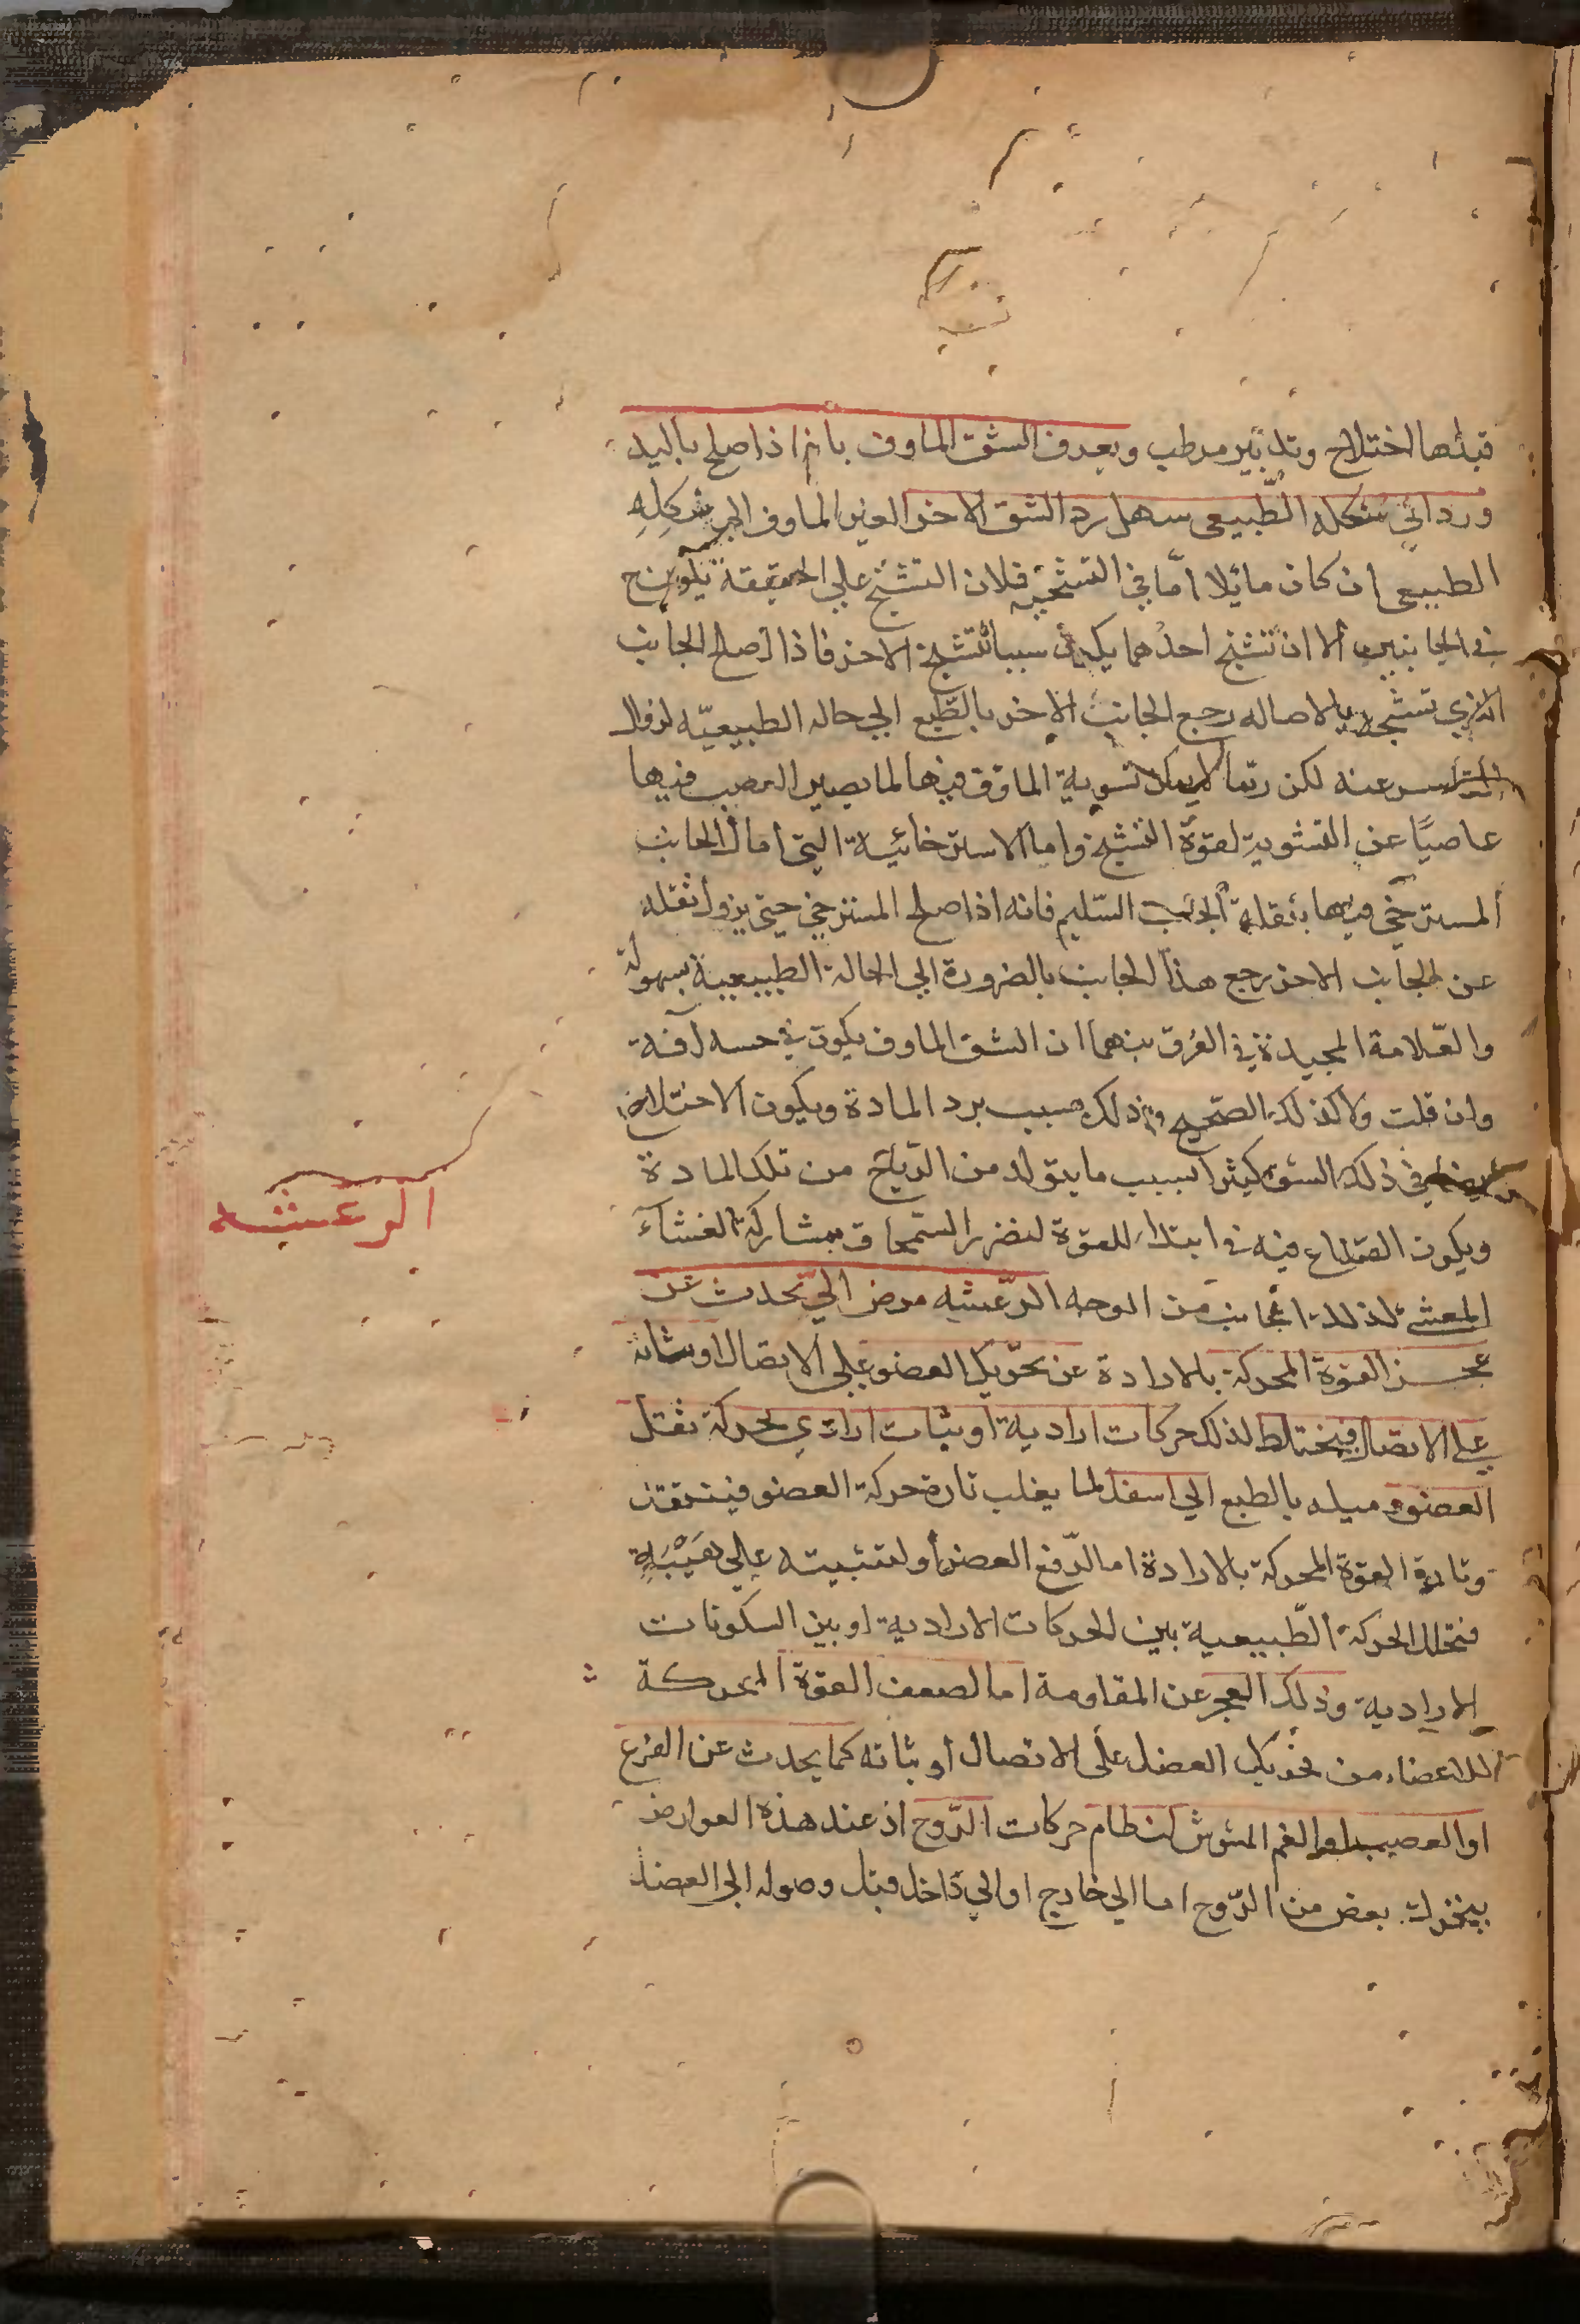 قبلها اختلاج وتدبير مرطب ويعرف الشق الماوف بانه اذا صلح باليد
ورد الي شكله الطبيعي سهل رد الشق الاخر الغير الماوف الي شكله
الطبيعي ان كان مائلا اما في التشنجيه فلان التشنج علي الحقيقة يكون ح
في الجانبين الا ان تشنج احدهما يكون سببا لتشنج الاخر فاذا اصلح الجانب
الذي تشنجه بالاصاله رجع الجانب الاخر بالطبع الي حاله الطبيعيه لزوال
عنه لكن ربما لا يمكن تسوية الماوف فيها لما يصير العصب فيها
عاصيا عن التسوية لقوة التشنج واما الاسترخائية التي امال الجانب
المسترخي فيها بثقله الجانب السليم فانه اذا صلح المسترخي حتي يزول ثقله
عن الجانب الاخر رجع هذا الجانب بالضرورة الي الحالة الطبيعية بسهولة
والعلامة الجيدة في الفرق بينهما ان الشق الماوف يكون في حسه آفة
وان قلت ولا كذلك الصحيح وذلك بسبب برد المادة ويكون الاختلاج
في ذلك الشق كثيرا بسبب ما يتولد من الرياح من تلك المادة
ويكون الصداع فيه في ابتداء للقوة لتضرر السمحاق بمشاركة الغشاء
المغشي لذلك الجانب من الوجه الرعشه مرض الي تحدث عن
عجز القوة المحركة بالارادة عن تحريك العضو علي الاتصال او ثباته
علي الاتصال فيختلط لذلك حركات ارادية او ثبات ارادي بحركة ثقل
العضو وميله بالطبع الي اسفل لما يغلب تارة حركة العضو
وتارة القوة المحركة بالارادة اما لرفع العضو او لتثبيته علي هيئته
فتخلل الحركة الطبيعية بين الحركات الارادية او بين السكونات
الارادية وذلك العجز عن المقاومة اما لضعف القوة المحركة
للاعضاء من تحريك العضل علي الاتصال او ثباته كما يحدث عن الفزع
او الغم المشوش لنظام حركات الروح اذ عند هذه العوارض
يتحرك بعض من الروح اما الي خارج او الي داخل قبل وصوله الي العضل
الرعشه